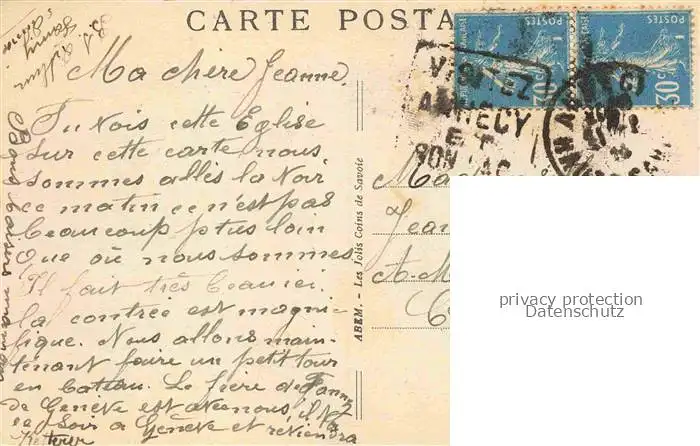 CARTE POSTA
Ma chère Jeanne.
Tu vois cette Eglise
sur cette carte nous
sommes allés la voir
ce matin ce n'est pas
beaucoup plus loin
que où nous sommes
Il fait très beau ici.
la contrée est magni-
fique. Nous allons main-
tenant faire un petit tour
en bateau. Le frère de Fanny
de Genève est avec nous, il
ce soir a Genève et reviendra
Bons baisers maman
ABEM. - Les Jolis Coins de Savoie
VISITEZ
ANNECY
ET
SON LAC
POSTES
30c
POSTES
30c
Ma
Jean
A.M
C
privacy protection
Datenschutz